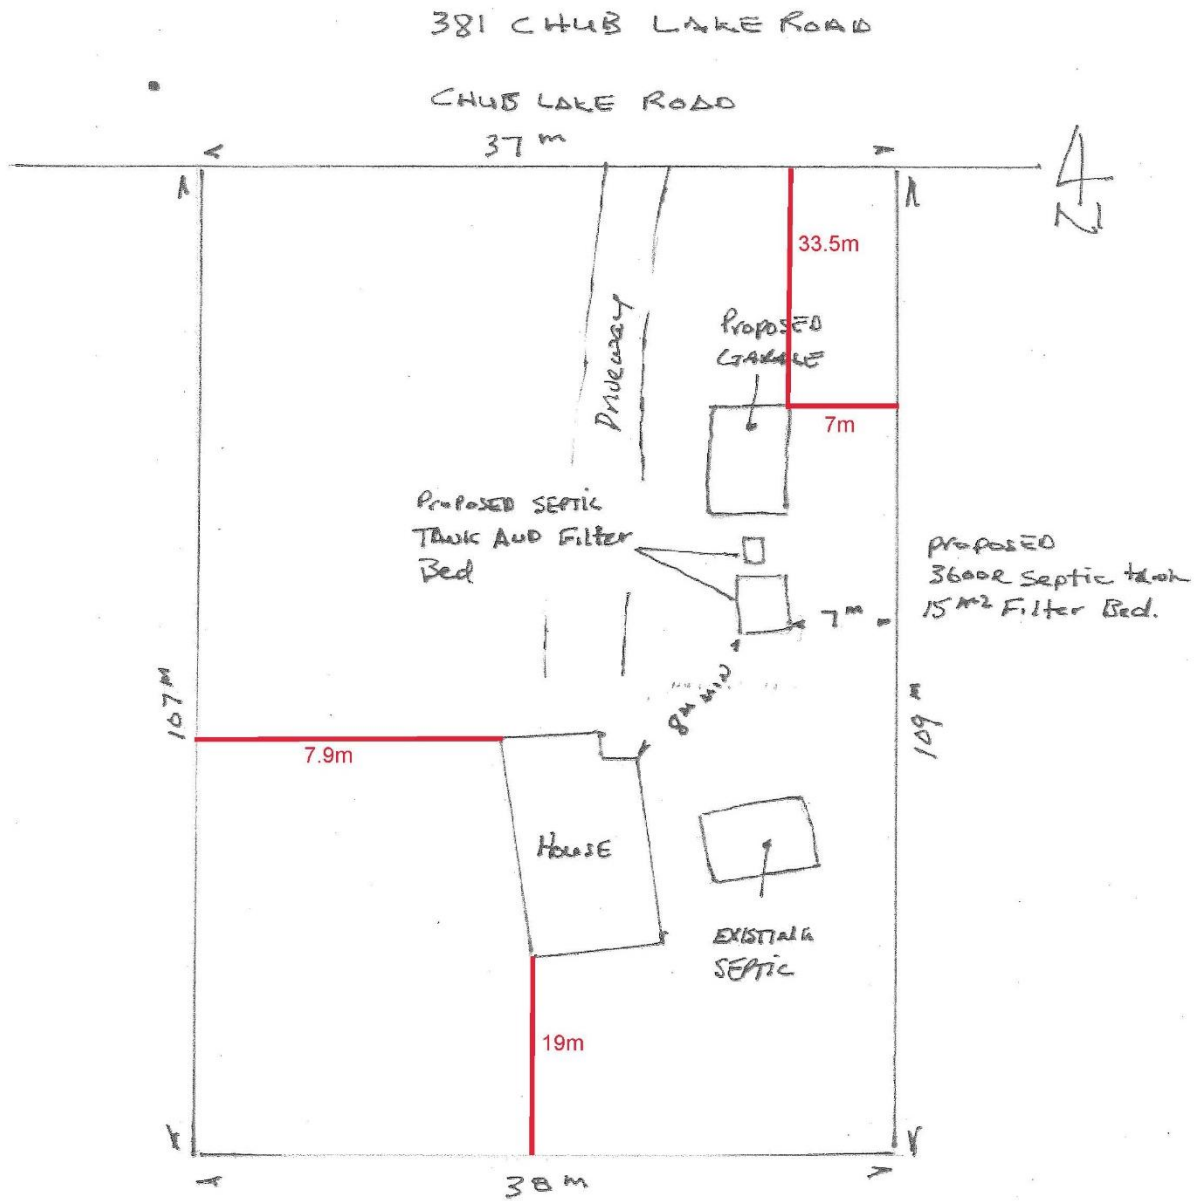 381 CHUB LAKE ROAD
CHUB LAKE ROAD
37 m
N
33.5m
Driveway
Proposed
GARAGE
7m
Proposed SEPTIC
TANK AND Filter
Bed
proposed
3600L Septic tank
15 m2 Filter Bed.
7 m
8m MIN
107 m
109 m
7.9m
House
EXISTING
SEPTIC
19m
38 m